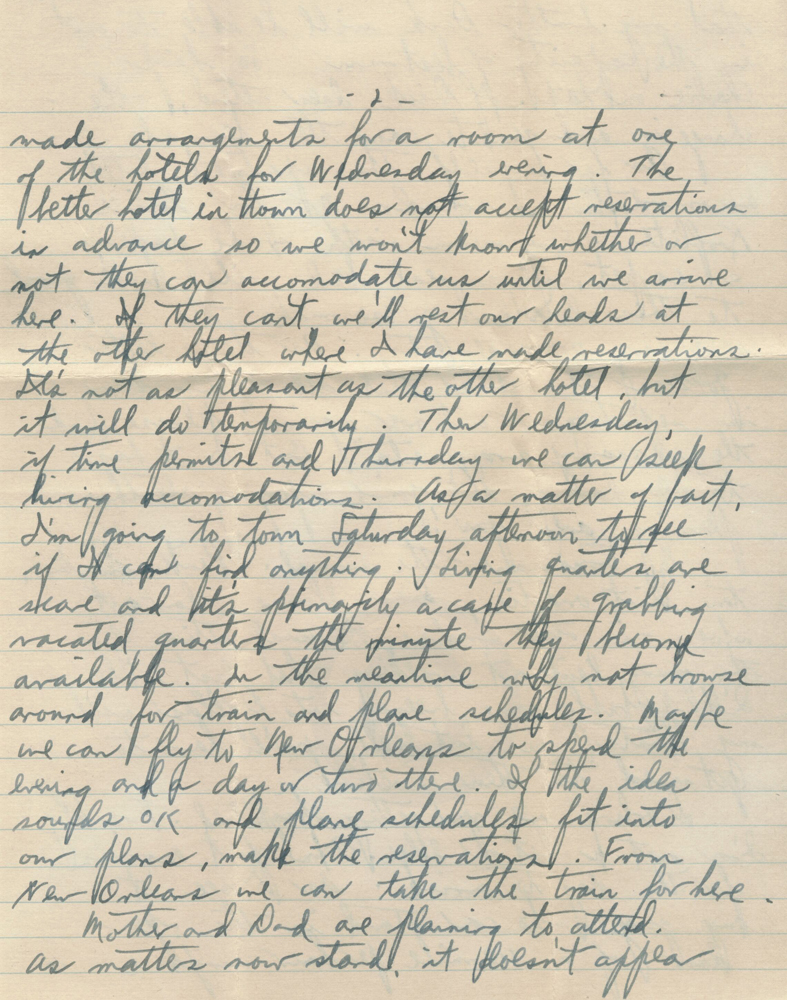 - 2 -
made arrangements for a room at one
of the hotels for Wednesday evening. The
better hotel in town does not accept reservations
in advance so we won't know whether or
not they can accomodate us until we arrive
here. If they can't we'll rest our heads at
the other hotel where I have made reservations.
It's not as pleasant as the other hotel, but
it will do temporarily. Then Wednesday,
if time permits and Thursday we can seek
living accomodations. As a matter of fact,
I'm going to town Saturday afternoon to see
if I can find anything. Living quarters are
scare and it's primarily a case of grabbing
vacated quarters the minute they become
available. In the meantime why not browse
around for train and plane schedules. Maybe
we can fly to New Orleans to spend the
evening and a day or two there. If the idea
sounds OK and plane schedules fit into
our plans, make the reservations. From
New Orleans we can take the train for here.
Mother and Dad are planning to attend.
As matters now stand, it doesn't appear